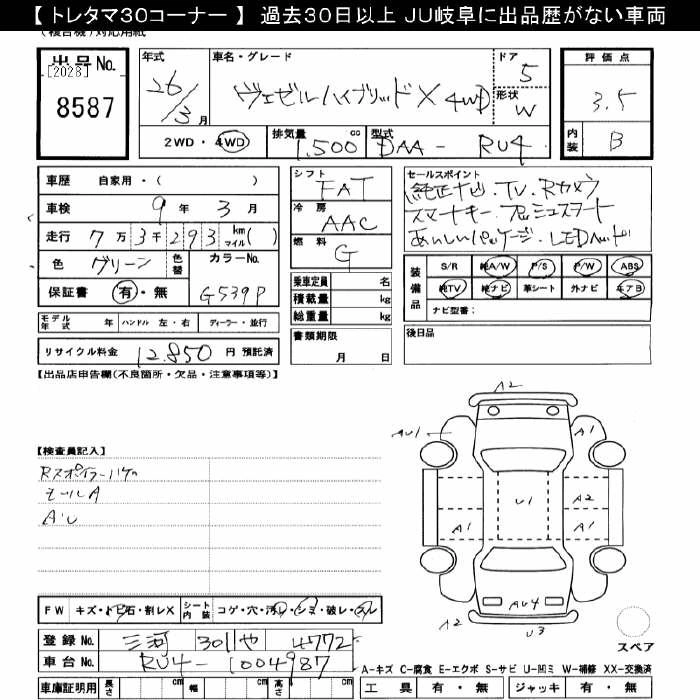 【 トレタマ30コーナー 】 過去30日以上 JU岐阜に出品歴がない車両
(複合機)対応用紙
出品No.
【2028】
8587
年式
26/3月
車名・グレード
ヴェゼルハイブリッドX 4WD
ドア
5
形状
W
評価点
3.5
内装
B
2WD・4WD
排気量
1,500 cc
型式
DAA - RU4
車歴 自家用・( )
車検 9年 3月
走行 7万3千293 km マイル( )
色 グリーン 色替 カラーNo.
G539P
保証書 有・無
シフト
FAT
冷房
AAC
燃料
G
乗車定員 名
積載量 kg
総重量 kg
書類期限
月 日
セールスポイント
純正ナビ.TV.Rカメラ
スマートキー.プッシュスタート
あんしんパッケージ.LEDヘッド
装備品
S/R 純A/W P/S P/W ABS
純TV 純ナビ 革シート 外ナビ エアB
ナビ型番:
後日品
モデル年式 年 ハンドル 左・右 ディーラー・並行
リサイクル料金 12,850 円 預託済
【出品店申告欄(不良箇所・欠品・注意事項等)】
【検査員記入】
Rスポイラーハゲ
モールA
A.U
A2
AU1
A1
U1
A2
A1
A1
AU4
A2
U3
スペア
FW キズ・トビ石・割レX シート内装 コゲ・穴・汚レ・シミ・破レ・スレ
登録No. 三河 301 や 4772
車台No. RU4-1004987
車庫証明用 長さ cm 幅 cm 高さ cm
A-キズ C-腐食 E-エクボ S-サビ U-凹ミ W-補修 XX-交換済
工具 有・無 ジャッキ 有・無